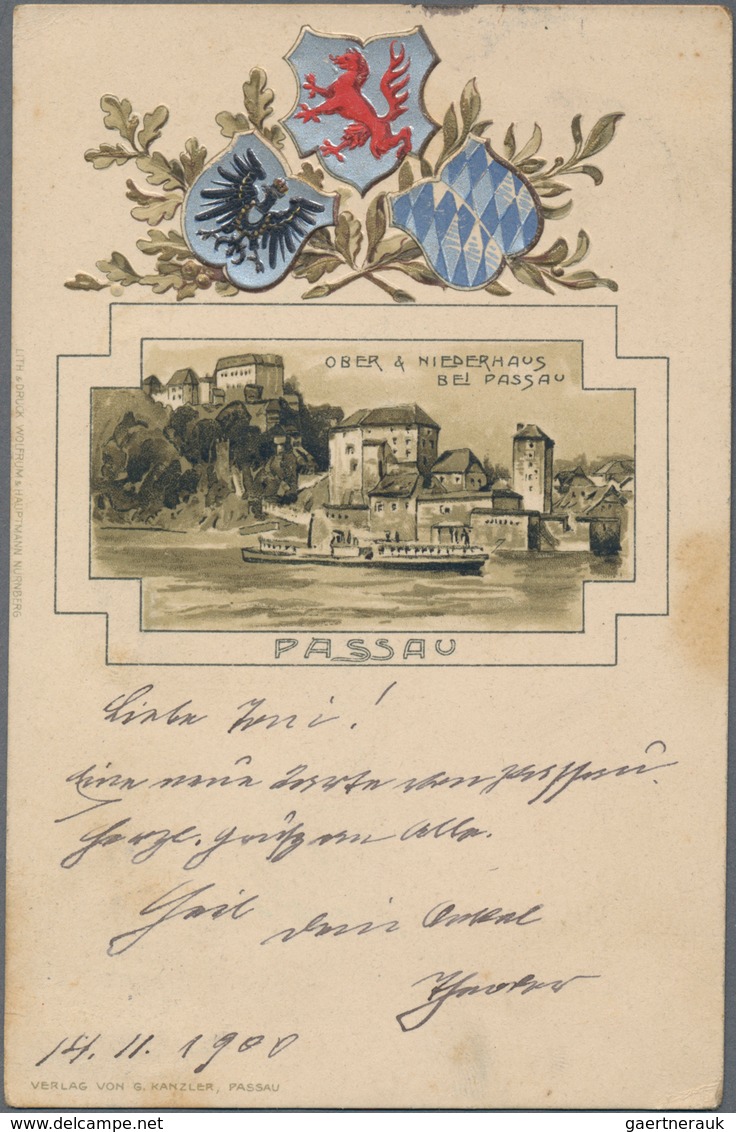 OBER & NIEDERHAUS
BEI PASSAU
PASSAU
LITH. & DRUCK WOLFRUM & HAUPTMANN NÜRNBERG
Liebe Toni!
Eine neue Karte von Passau.
Herzl. Grüße an Alle.
Heil Dein Onkel
Theodor
14. 11. 1900
VERLAG VON G. KANZLER, PASSAU
gaertnerauk